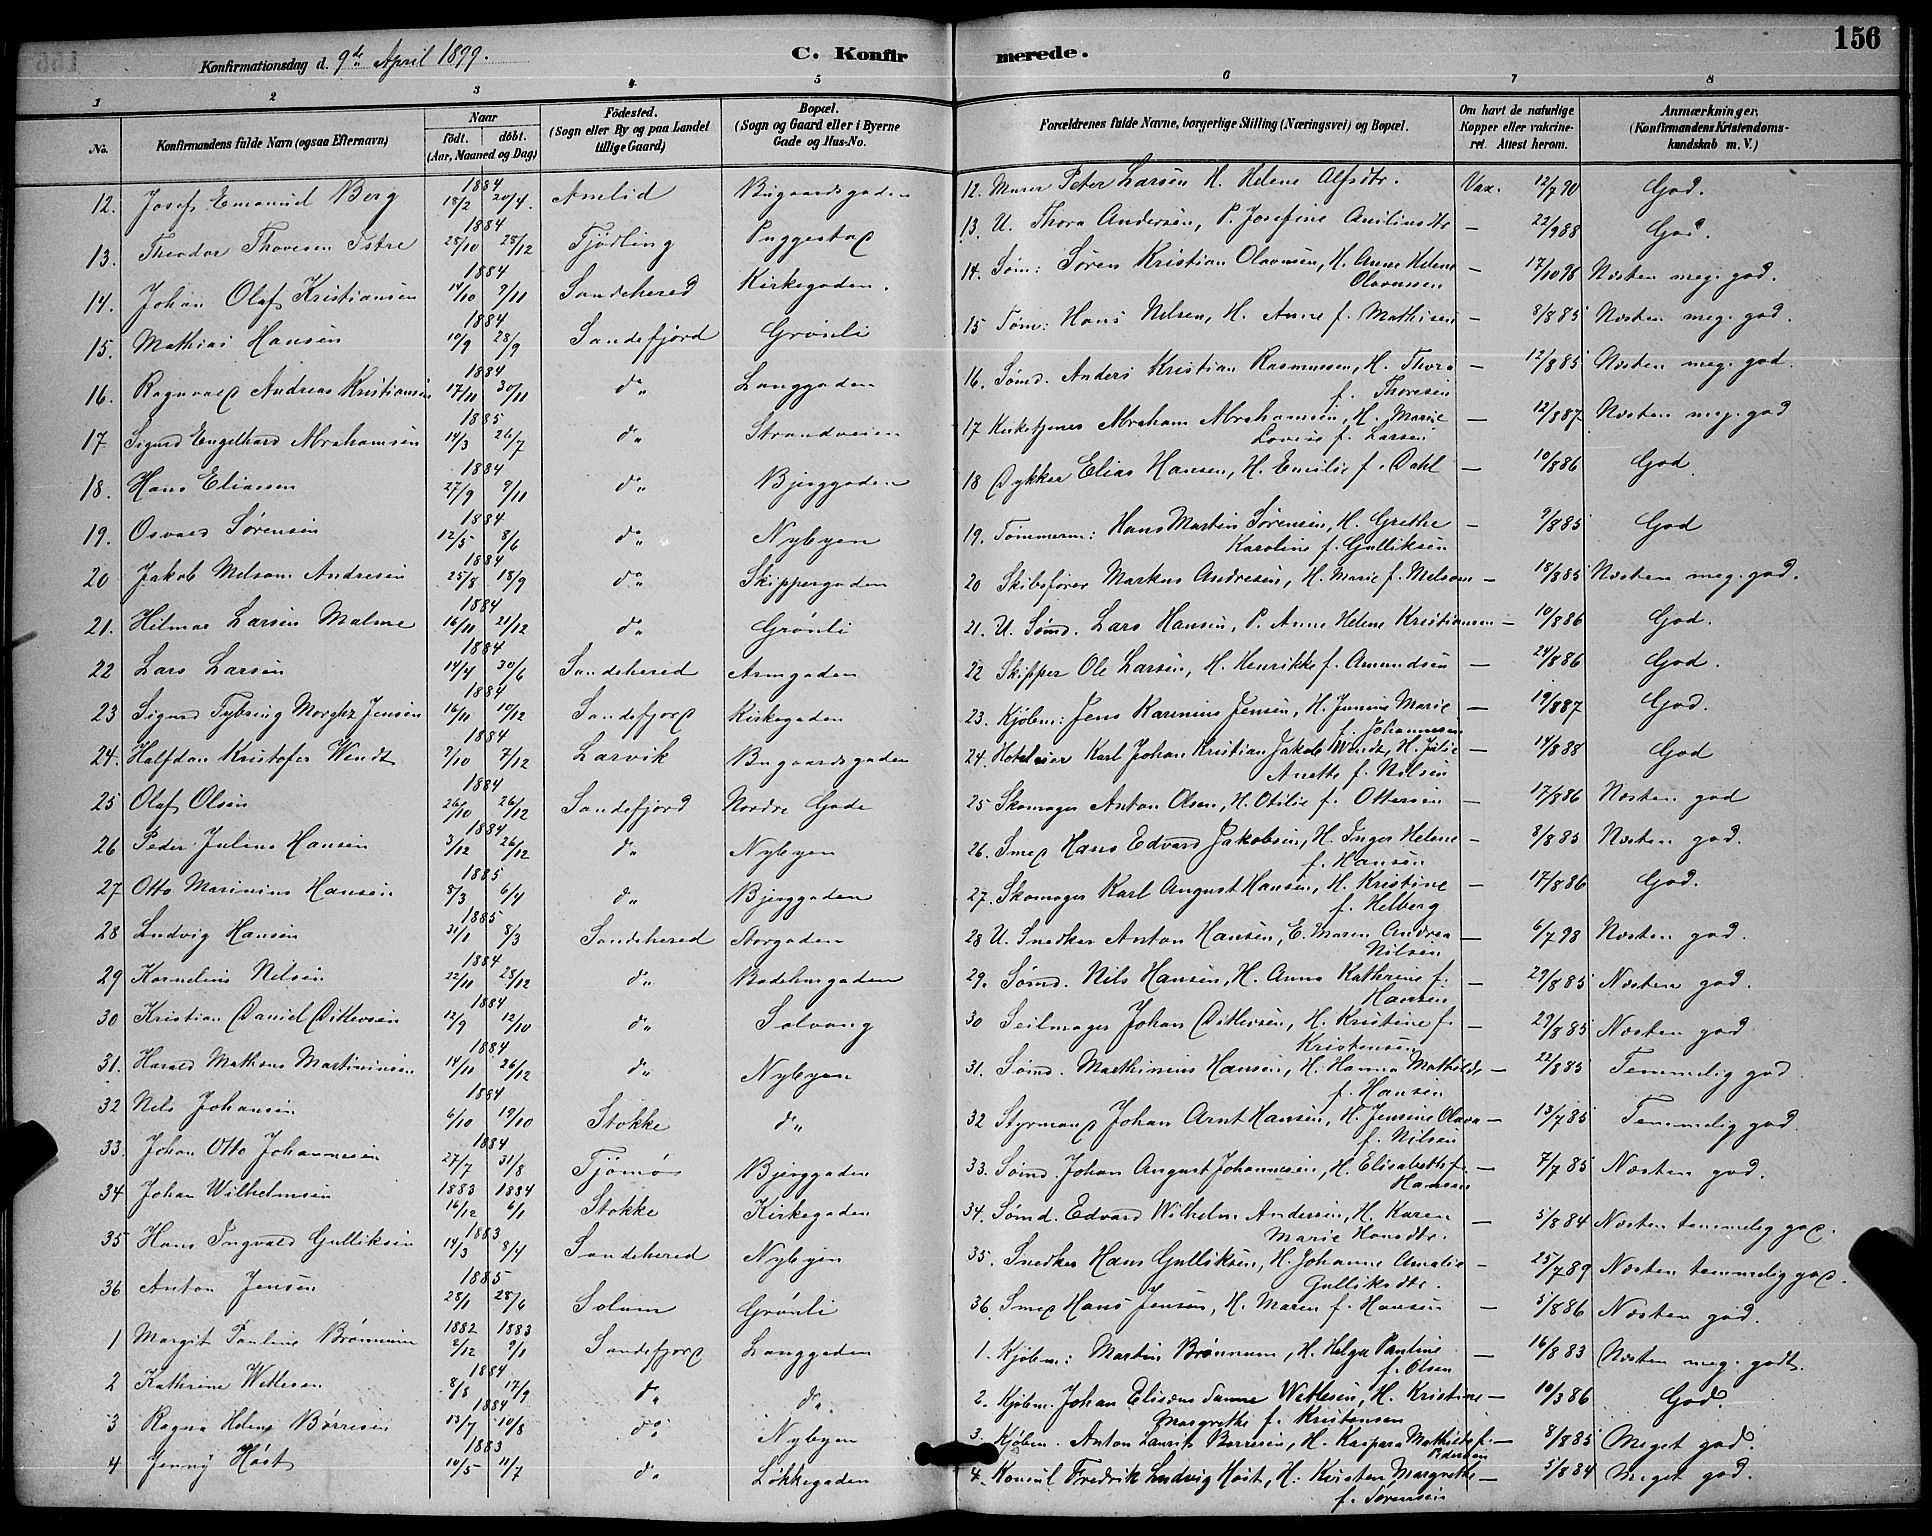 156
Konfirmationsdag d. 9de April 1899.
C. Konfirmerede.
1 2 3 4 5 6 7 8
No. Konfirmandens fulde Navn (ogsaa Efternavn) Naar født. døbt. (Aar, Maaned og Dag) Födested. (Sogn eller By og paa Landet tillige Gaard) Bopæl. (Sogn og Gaard eller i Byerne Gade og Hus-No. Forældrenes fulde Navne, borgerlige Stilling (Næringsvei) og Bopæl. Om havt de naturlige Kopper eller vakcineret. Attest herom. Anmærkninger. (Konfirmandens Kristendomskundskab m. V.)
12. Josef Emanuel Berg 1884 18/2 20/4. Amlid Bugaardsgaden 12. Murer Peter Larsen H. Helene Alfsdtr. Vax. 12/7 90 God.
13. Theodor Thovesen Istre 1884 28/10 28/12 Tjødling Puggestad 13. U. Thora Andersen, P. Josefine — 22/9 88 God.
14. Johan Olaf Kristiansen 1884 14/10 9/11 Sandehered Kirkegaden. 14. Søm: Søren Kristian Olavusen, H. Anne Helene Olavussen — 17/10 98 Næsten meg. god.
15. Mathias Hansen 1884 10/9 28/9 Sandefjord Grønli 15 Tøm: Hans Nilsen, H. Anne f. Mathisen — 8/8 85 Næsten meg. god.
16. Ragnvald Andreas Kristiansen 1884 17/11 30/11 do Langgaden 16. Sømd. Anders Kristian Rasmussen, H. Thora f. Thoresen — 12/8 85 Næsten meg. god
17. Sigurd Engelhard Abrahamsen 1885 14/3 26/7 do Strandveien 17 Kirketjener Abraham Abrahamsen, H. Marie Lovise f. Larsen — 12/8 87 Næsten meg. god
18. Hans Eliassen 1884 27/9 9/11 do Bjerggaden 18 Dykker Elias Hansen, H. Emilie f. Dahl — 10/8 86 God
19. Osvald Sørensen 1884 12/5 8/6 do Nybyen 19. Tømmerm: Hans Martin Sørensen, H. Grethe Karoline f. Gulliksen — 9/8 85 God
20 Jakob Melsom Andresen 1884 25/8 18/9 do Skippergaden 20 Skibsfører Markus Andresen, H. Marie f. Melsom — 18/8 85 Næsten meg. god.
21. Hilmar Larsen Malme 1884 16/11 21/12 do Grønli 21. U. Sømd. Lars Hansen, P. Anne Helene Kristiansen — 10/8 86 God.
22 Lars Larsen 1884 14/4 30/6 Sandehered Asmgaden 22 Skipper Ole Larsen, H. Henrikke f. Amundsen — 24/8 86 God.
23 Sigurd Tybring Jensen 1884 16/11 10/12 Sandefjord Kirkegaden 23. Kjøbm: Jens Karinius Jensen, H. Marie f. Johannesen — 19/8 87 God.
24. Halfdan Kristofer Wendt 1884 9/10 7/12 Larvik Bugaardsgaden 24. Hoteleier Karl Johan Kristian Jakob Wendt, H. Julie Anette f. Nilsen — 14/8 88 God
25 Olaf Olsen 1884 26/10 26/12 Sandefjord Nordre Gade 25 Skomager Anton Olsen, H. Otilie f. Ottersen — 17/8 86 Næsten god
26 Peder Julius Hansen 1884 3/12 26/12 do Nybyen 26. Smed Hans Edvard Jakobsen, H. Inger Helene f. Hansen — 8/8 85 Næsten god.
27 Otto Marinius Hansen 1885 8/3 6/4 do Bjerggaden 27. Skomager Karl August Hansen, H. Kristine f. Helberg — 17/8 86 God.
28 Ludvig Hansen 1885 31/1 8/3 Sandehered Storgaden 28 U. Snedker Anton Hansen, E. Maren Andrea Nilsen — 6/7 98 Næsten god.
29 Kornelius Nilsen 1884 22/11 28/12 do Badehusgaden 29. Sømd. Nils Hansen, H. Anna Kathrine f. Hansen — 29/8 85 Næsten god.
30 Kristian Daniel Ditlevsen 1884 12/9 12/10 do Solvang 30 Seilmager Johan Ditlevsen, H. Kristine f. Kristensen — 29/8 85 Næsten god
31. Harald Mathæus Martiniusen 1884 14/11 26/12 do Nybyen 31. Sømd. Marthinius Hansen, H. Hanna Mathilde f. Hansen — 22/8 85 Temmelig god
32 Nils Johansen 1884 6/10 19/10 Stokke do 32 Styrmand Johan Arnt Hansen, H. Jensine Olava f. Nilsen — 13/7 85 Temmelig god.
33. Johan Otto Johannesen 1884 27/7 31/8 Tjømø Bjerggaden 33. Sømd. Johan August Johannesen, H. Elisabeth f. Hansen — 7/7 85 Næsten god.
34 Johan Wilhelmsen 1883 1884 16/12 6/1 Stokke Kirkegaden 34. Sømd. Edvard Wilhelm Andersen, H. Karen Marie Hansdtr. — 5/8 84 Næsten temmelig god.
35 Hans Ingvald Gulliksen 1883 14/3 8/4 Sandehered Nybyen 35. Snedker Hans Gulliksen, H. Johanne Amalie Gulliksdtr. — 25/7 89 Næsten temmelig god.
36 Anton Jensen 1885 28/1 28/6 Solum Grønli 36. Smed Hans Jensen, H. Maren f. Hansen — 5/8 86 Næsten god.
1 Margit Pauline Brønnum 1882 1883 2/12 9/1 Sandefjord Langgaden 1. Kjøbm: Martin Brønnum, H. Helga Pauline f. Olsen — 16/8 83 Næsten meg. godt.
2 Kathrine Wetlesen 1884 8/8 17/9 do do 2. Kjøbm. Johan Elisæus Wetlesen, H. Kristine Margrethe f. Kristensen — 10/3 86 God.
3 Ragna Helene Børresen 1884 13/7 10/8 do Nybyen 3. Kjøbm. Anton Laurits Børresen, H. Kaspara Mathilde f. Pedersen — 8/8 85 Meget god.
4 Jenny Høst 1883 10/5 11/7 do Løkkegaden 4. Konsul Fredrik Ludvig Høst, H. Kirsten Margrethe f. Sørensen — 5/8 84 Meget god.